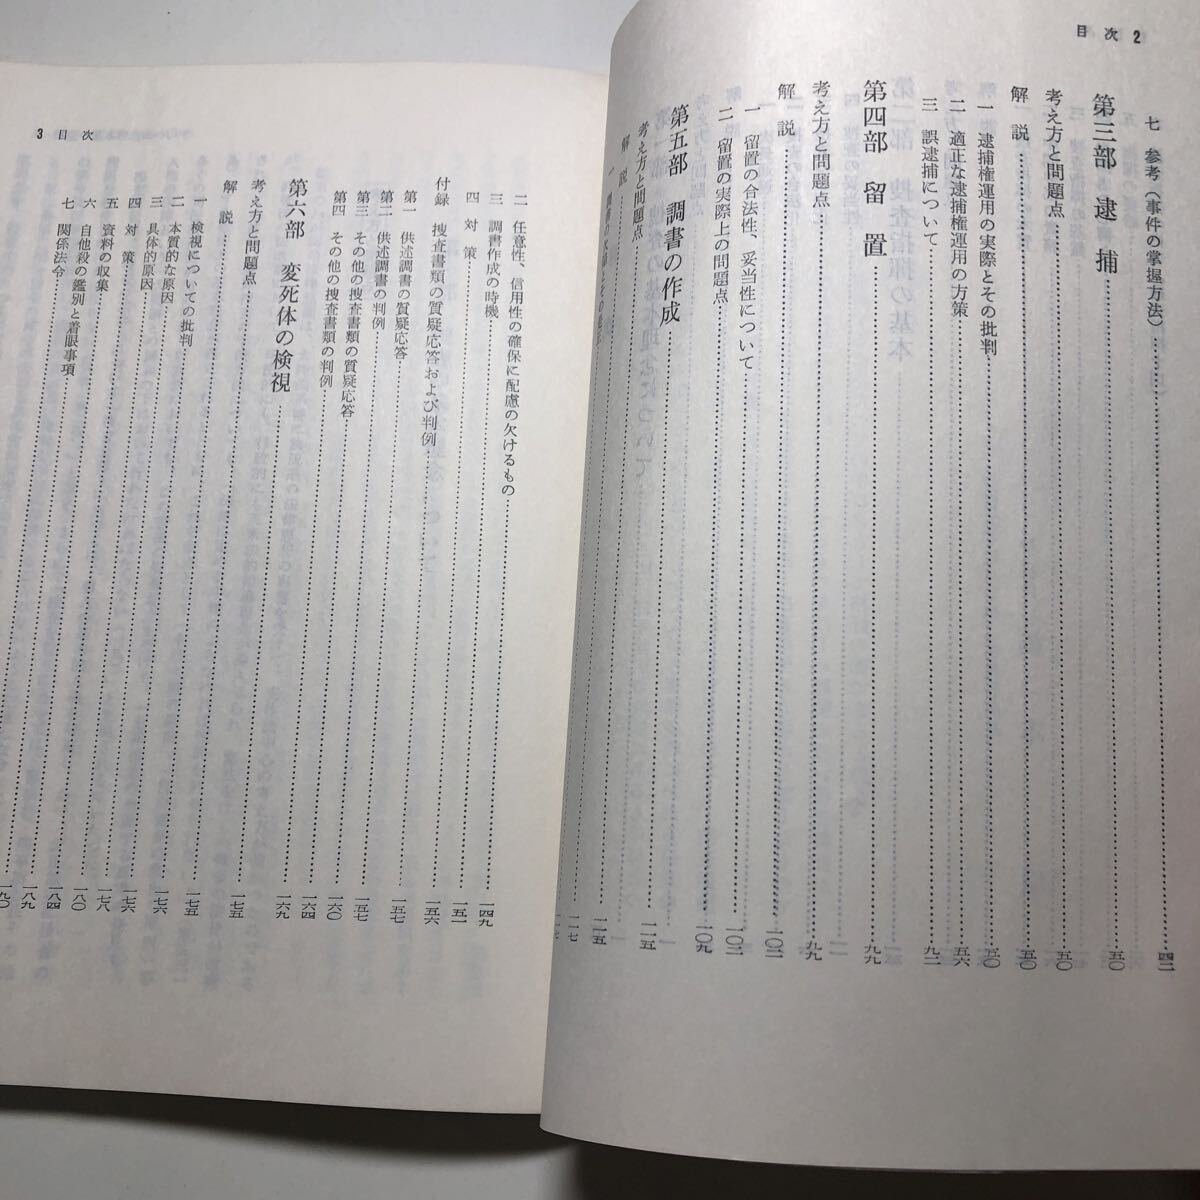 目次 2
七 参考（事件の掌握方法）……四二
第三部 逮捕……五〇
考え方と問題点……五〇
解説……五〇
一 逮捕権運用の実際とその批判……五〇
二 適正な逮捕権運用の方策……五六
三 誤逮捕について……九二
第四部 留置……九九
考え方と問題点……九九
解説……一〇二
一 留置の合法性、妥当性について……一〇二
二 留置の実際上の問題点……一〇九
第五部 調書の作成……一一五
考え方と問題点……一一五
解説……一一七
3 目次
二 任意性、信用性の確保に配慮の欠けるもの……一四九
三 調書作成の時機……一五一
四 対策……一五六
付録 捜査書類の質疑応答および判例
第一 供述調書の質疑応答……一五七
第二 供述調書の判例……一五七
第三 その他の捜査書類の質疑応答……一六〇
第四 その他の捜査書類の判例……一六四
第六部 変死体の検視……一六九
考え方と問題点
解説……一七五
一 検視についての批判……一七五
二 本質的な原因……一七六
三 具体的原因……一七六
四 対策……一七八
五 資料の収集……一八〇
六 自他殺の鑑別と着眼事項……一八四
七 関係法令……一八九